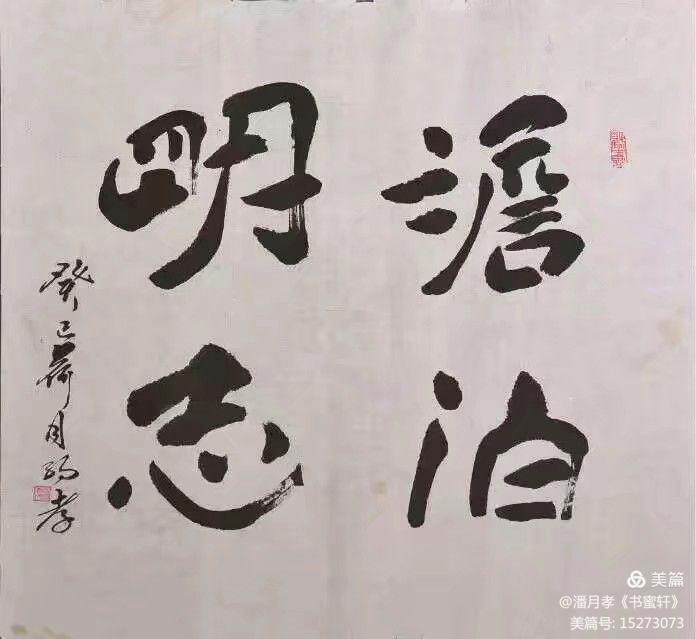 澹泊
明志
癸巳荷月孝
美篇
@潘月孝《书蜜轩》
美篇号: 15273073